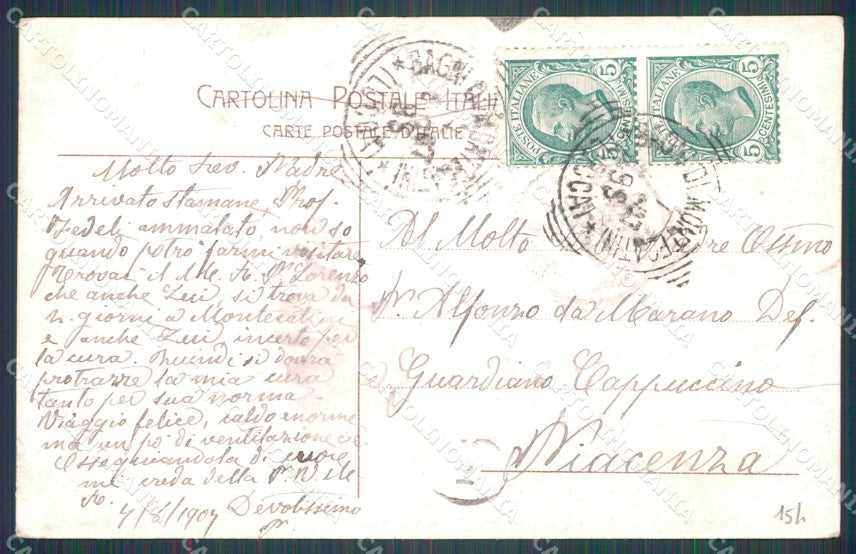 CARTOLINA POSTALE ITALIANA
CARTE POSTALE D'ITALIE
POSTE ITALIANE
CENTESIMI 5
POSTE ITALIANE
CENTESIMI 5
BAGNI DI MONTECATINI
BAGNI DI MONTECATINI
(LUCCA)
Molto Rev. Padre
Arrivato stamane, Prof.
Fedeli ammalato, non so
quando potrò farmi visitare
Trovai il P. Lorenzo
che anche Lui, si trova da
2. giorni a Montecatini
e anche Lui, incerto per
la cura. Quindi si dovrà
protrarre la mia cura
tanto per sua norma
Viaggio felice, caldo enorme
ma un po' di ventilazione
Ossequiandola di cuore
mi creda della P. V.
7/8/1907 Devotissimo
Al Molto Padre Ottimo
P. Alfonzo da Marano Def.
Guardiano Cappuccino
Piacenza
15h
CARTOLINOMANIA